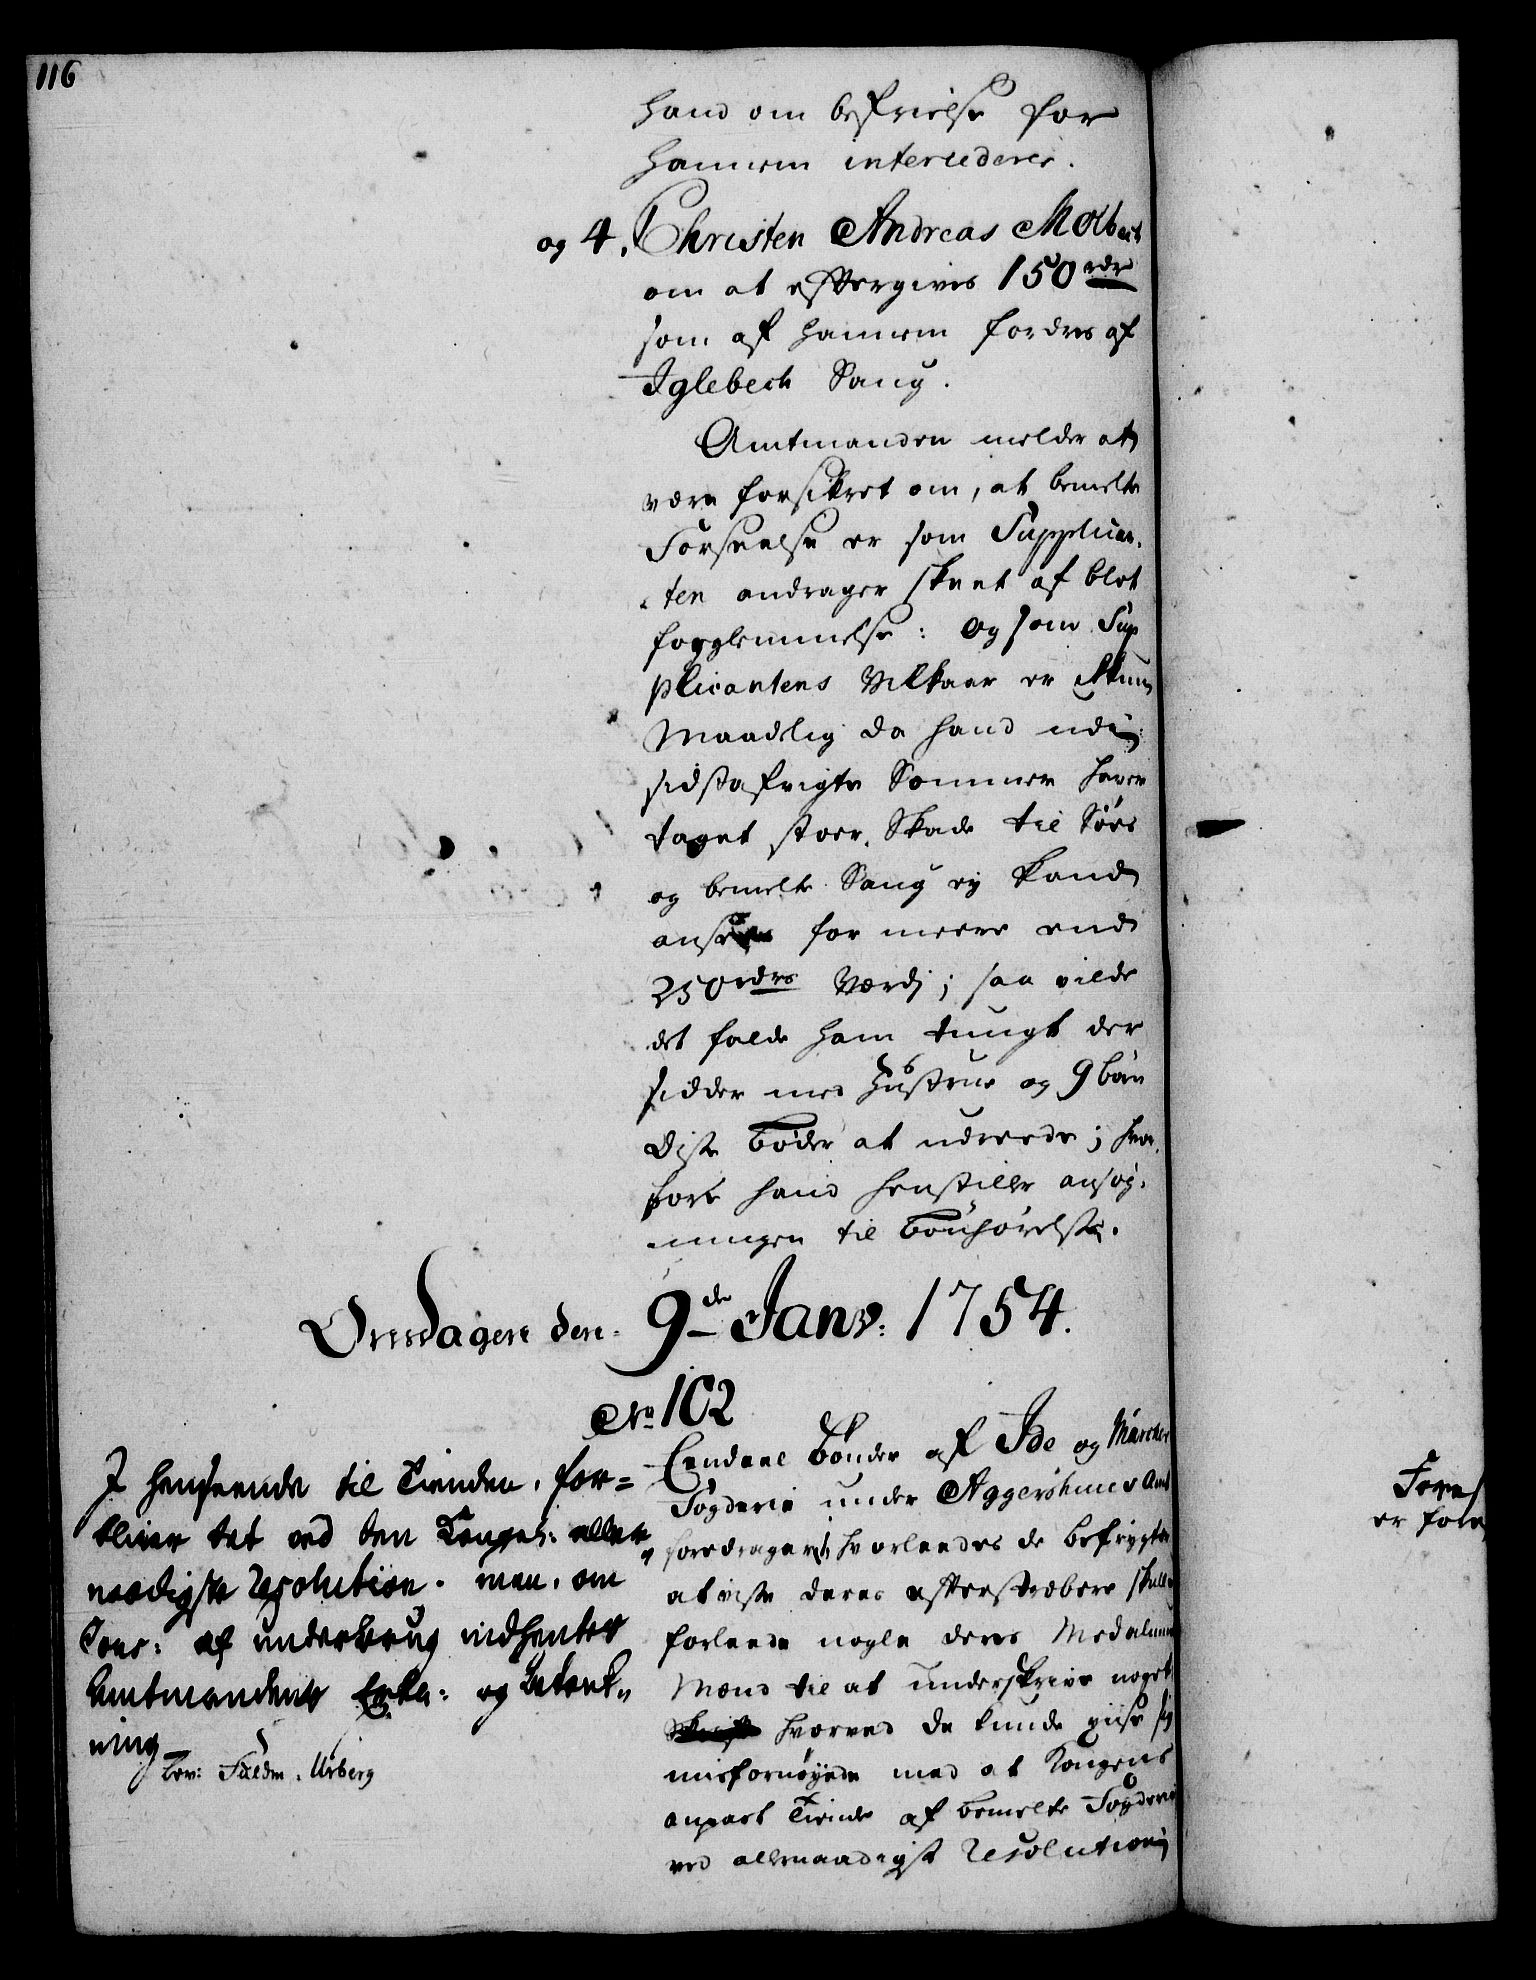 116
hand om befrielse for
hannem intercederer.
og 4. Christen Andreas Molbech
om at eftergives 150 rdr
som af hannem fordres af
Iglebech Saug.
Amtmanden melder at
være forsikret om, at bemelte
Forseelse er som Supplican-
ten andrager skeet af blot
forglemmelse: og som Sup
plicantens Vilkaar er ikkun
Maadelig da hand udi
sidstafvigte Sommer haver
taget stoer Skade til Søes
og bemelte Saug ey kand
ansees for meere end
250 rdrs Værdj; saa vilde
det falde ham tungt der
sidder med Hustrue og 9 børn
disse bøder at udreede; hvor-
fore hand henstiller ansøg-
ningen til bønhørelse.
Onsdagen den 9de Janv: 1754.
No 102
Eendeel bønder af Ide og Marcker
Fogderie under Aggershuus Amt
foredrager hvorleedes de befrygter
at visse deres efterstræbere skulle
forleede nogle deres Medalmues
Mænd til at underskrive noget
hvorved de kunde viise sig
misfornøyede med at Kongens
anpart Tiende af bemelte Fogderie
ved allernaadigst Resolution
I henseende til Tienden, for=
bliver det ved den Kongel: aller
naadigste Resolution. men, om
af underbrug indhentes
Amtmandens Erkl: og betænk-
ning
Lov: Falden. Urberg
er fore